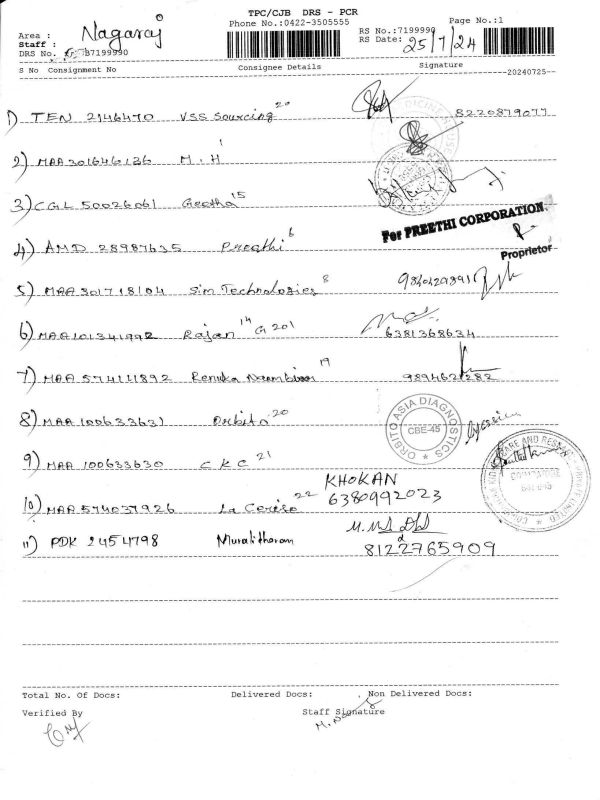 TPC/CJB DRS - PCR
Phone No.:0422-3505555
Page No.:1
Area : Nagaraj
Staff :
RS No.:7199990
RS Date: 25/7/24
DRS No. 7199990
S No Consignment No Consignee Details Signature
20240725
1) TEN 2146470 VSS Sourcing 20 8220879077
2) MAA301646136 M.H 1
3) CGL 50026061 Geetha 15
For PREETHI CORPORATION.
4) AMD 28987635 Preethi 6
Proprietor
5) MAA301718104 Sim Technologies 8 9840429891
6) MAA101341992 Rajan 14 G 201 6381368634
7) MAA 574111892 Renuka 19 9894621282
8) MAA 100633631 Orbito 20
ORBITO ASIA DIAGNOSTICS
CBE-45
9) MAA 100633630 C K C 21
KHOKAN
10) MAA 574037926 La Cerise 22 6380992023
11) PDK 2454798 Muralitharam
8122765909
Total No. Of Docs: Delivered Docs: Non Delivered Docs:
Verified By Staff Signature